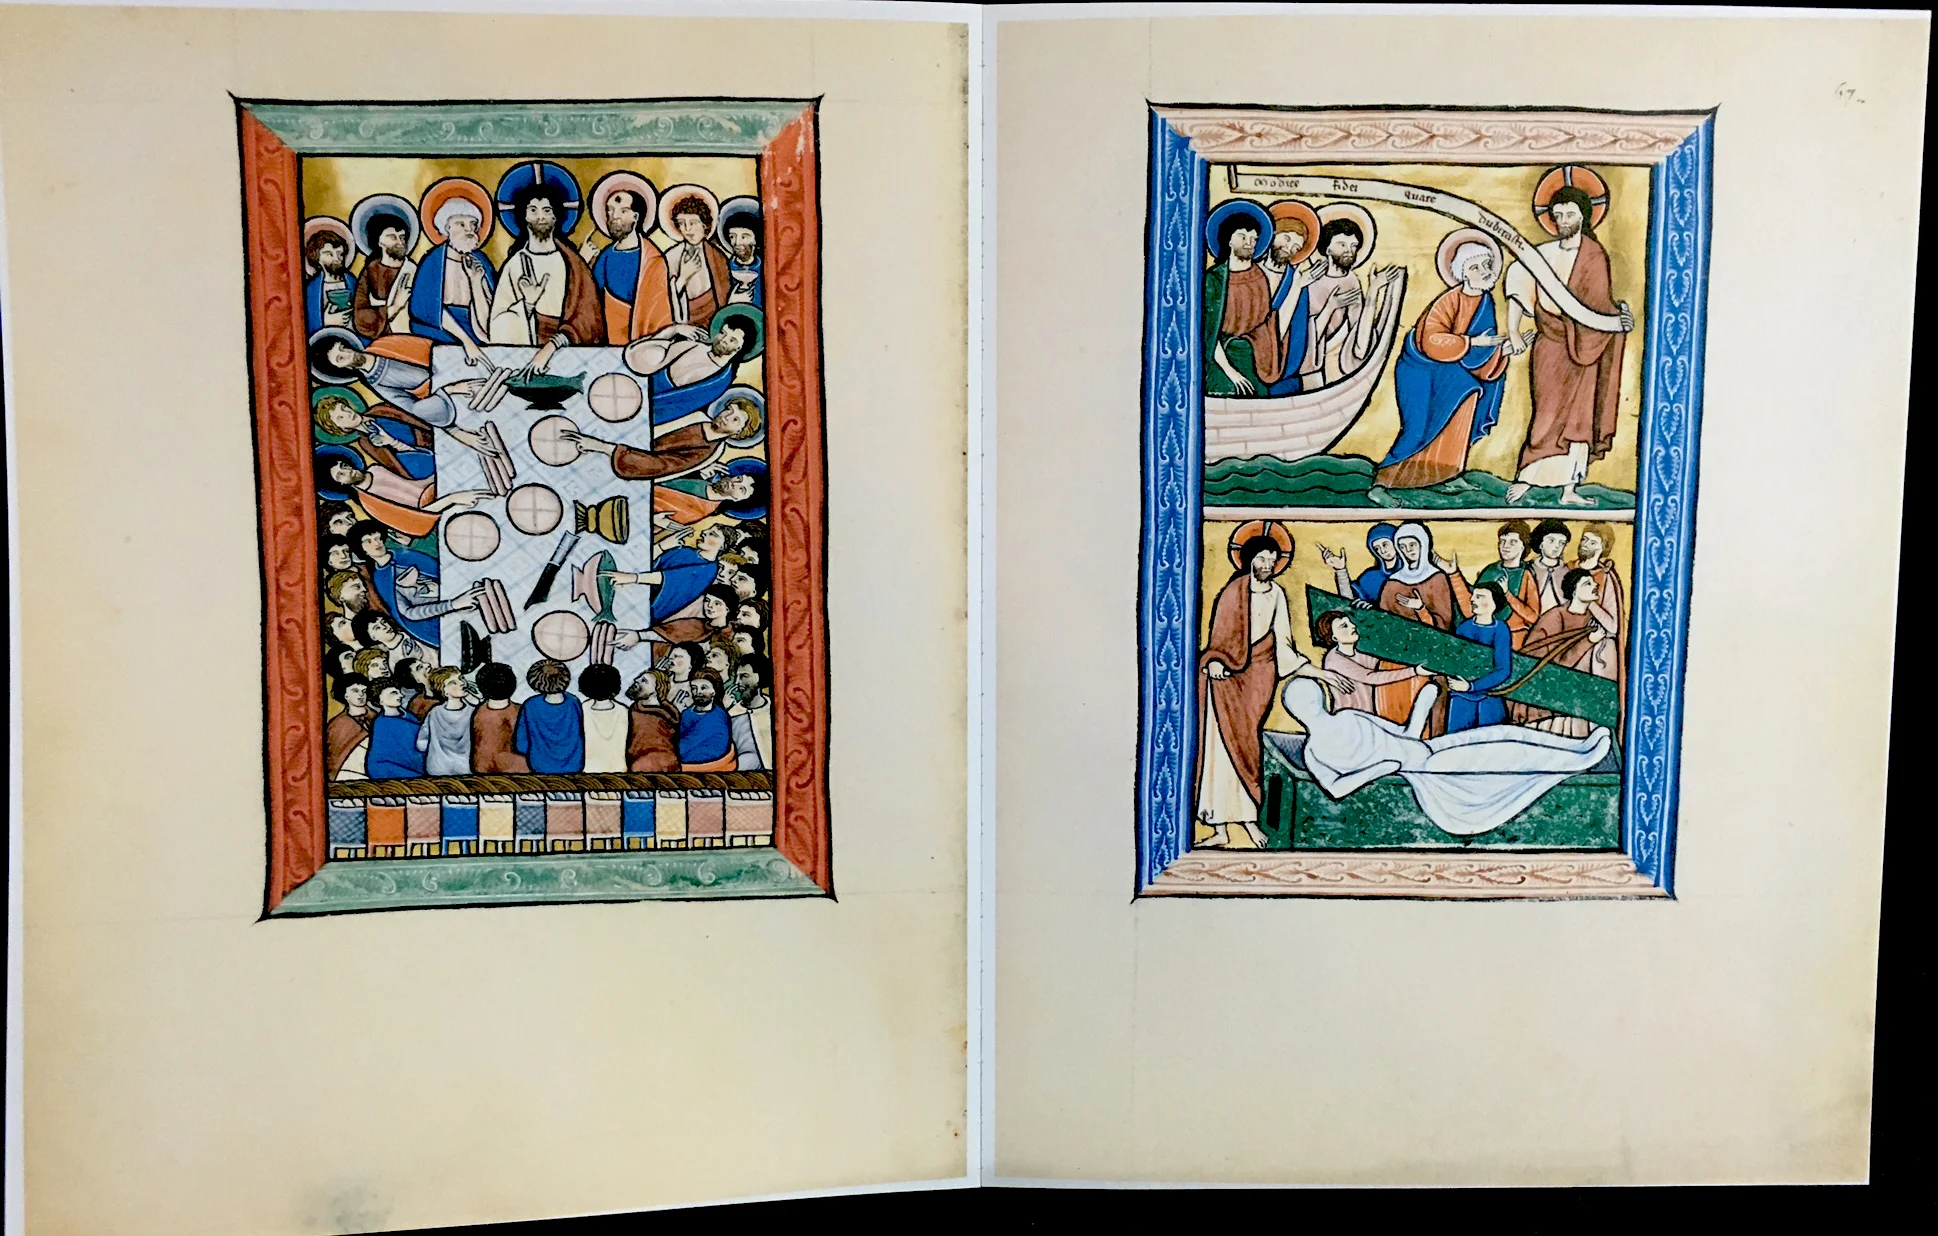 Modice fidei quare dubitasti.
67.